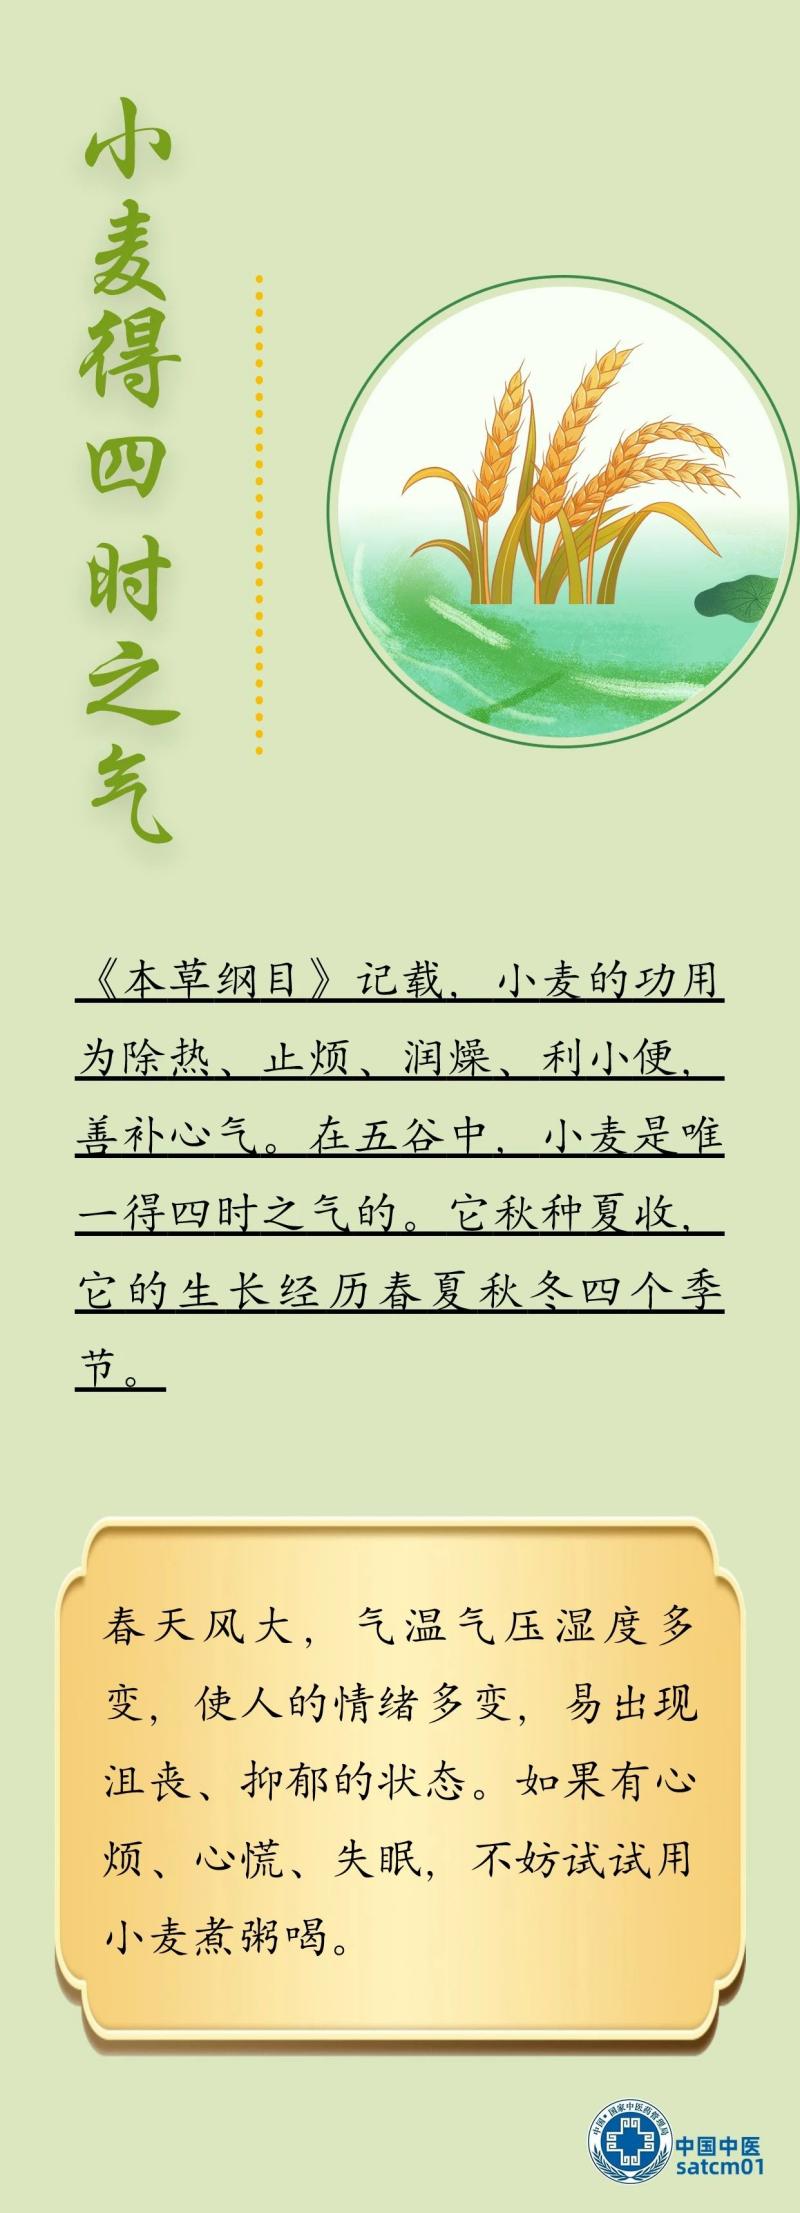 小麦得四时之气
《本草纲目》记载，小麦的功用
为除热、止烦、润燥、利小便，
善补心气。在五谷中，小麦是唯
一得四时之气的。它秋种夏收，
它的生长经历春夏秋冬四个季
节。
春天风大，气温气压湿度多
变，使人的情绪多变，易出现
沮丧、抑郁的状态。如果有心
烦、心慌、失眠，不妨试试用
小麦煮粥喝。
中国·国家中医药管理局
中国中医
satcm01